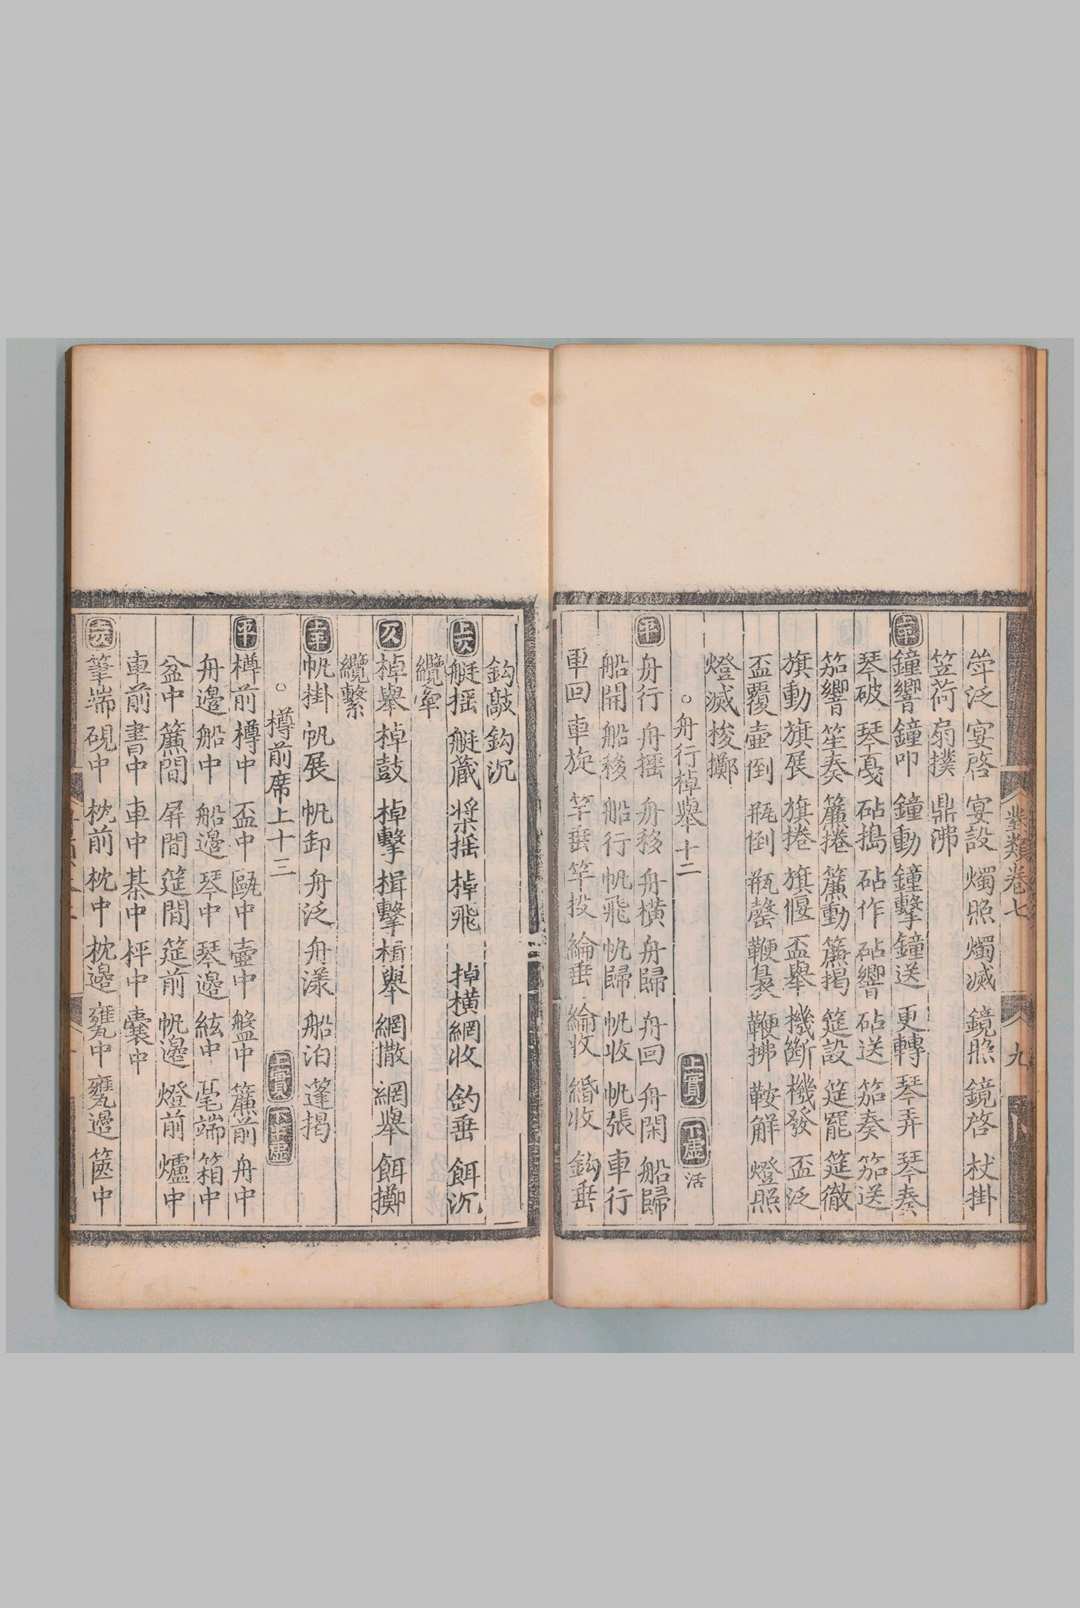 斝泛宴啓宴設燭照燭滅鏡照鏡啓杖掛
笠荷扇撲鼎沸
上平鐘響鐘叩鐘動鐘擊鐘送更轉琴弄琴奏
琴破琴戞砧搗砧作砧響砧送笳奏笳送
笳響笙奏簾捲簾動簾揭筵設筵罷筵徹
旗動旗展旗捲旗偃盃舉機斷機發盃泛
盃覆壷倒瓶倒瓶罄鞭裊鞭拂鞍解燈照
燈滅梭擲
○舟行棹舉十二 上實 下虛活
平舟行舟揺舟移舟橫舟歸舟回舟閑船歸
船開船移船行帆飛帆歸帆收帆張車行
車回車旋竿垂竿投綸垂綸收緡收鈎垂
對類卷七
九
鈎敲鈎沉
上次艇揺艇藏槳揺棹飛棹橫網收釣垂餌沉
纜牽
仄棹舉棹鼓棹擊楫擊楫舉網撒網舉餌擲
纜繫
上平帆掛帆展帆卸舟泛舟漾船泊蓬揭
○樽前席上十三 上實 下虛
平樽前樽中盃中甌中壷中盤中簾前舟中
舟邊船中船邊琴中琴邊絃中毫端箱中
盆中簾間屏間筵間筵前帆邊燈前爐中
車前書中車中棊中枰中囊中
上次筆端硯中枕前枕中枕邊甕中甕邊篋中